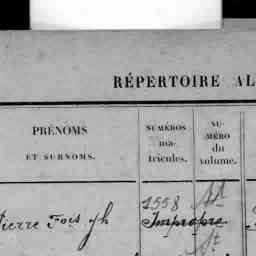 RÉPERTOIRE AL
PRÉNOMS
ET SURNOMS.
NUMÉROS
ma-
tricules.
NU-
MÉRO
du
volume.
1558
Pierre Fois Jh
Impropre